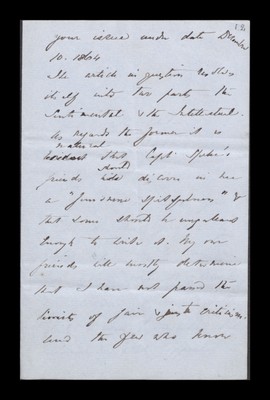 your issue under date December
10. 1864
The article in question resolves
itself into two parts the
Sentimental & the Intellectual.
As regards the former it is
natural
that Capt. Speke's
friends should discover in me
a " spitefulness" &
that some should be ungenerous
enough to write it. My own
friends will mostly determine
that I have not passed the
limits of fair & just criticism.
and the few who know